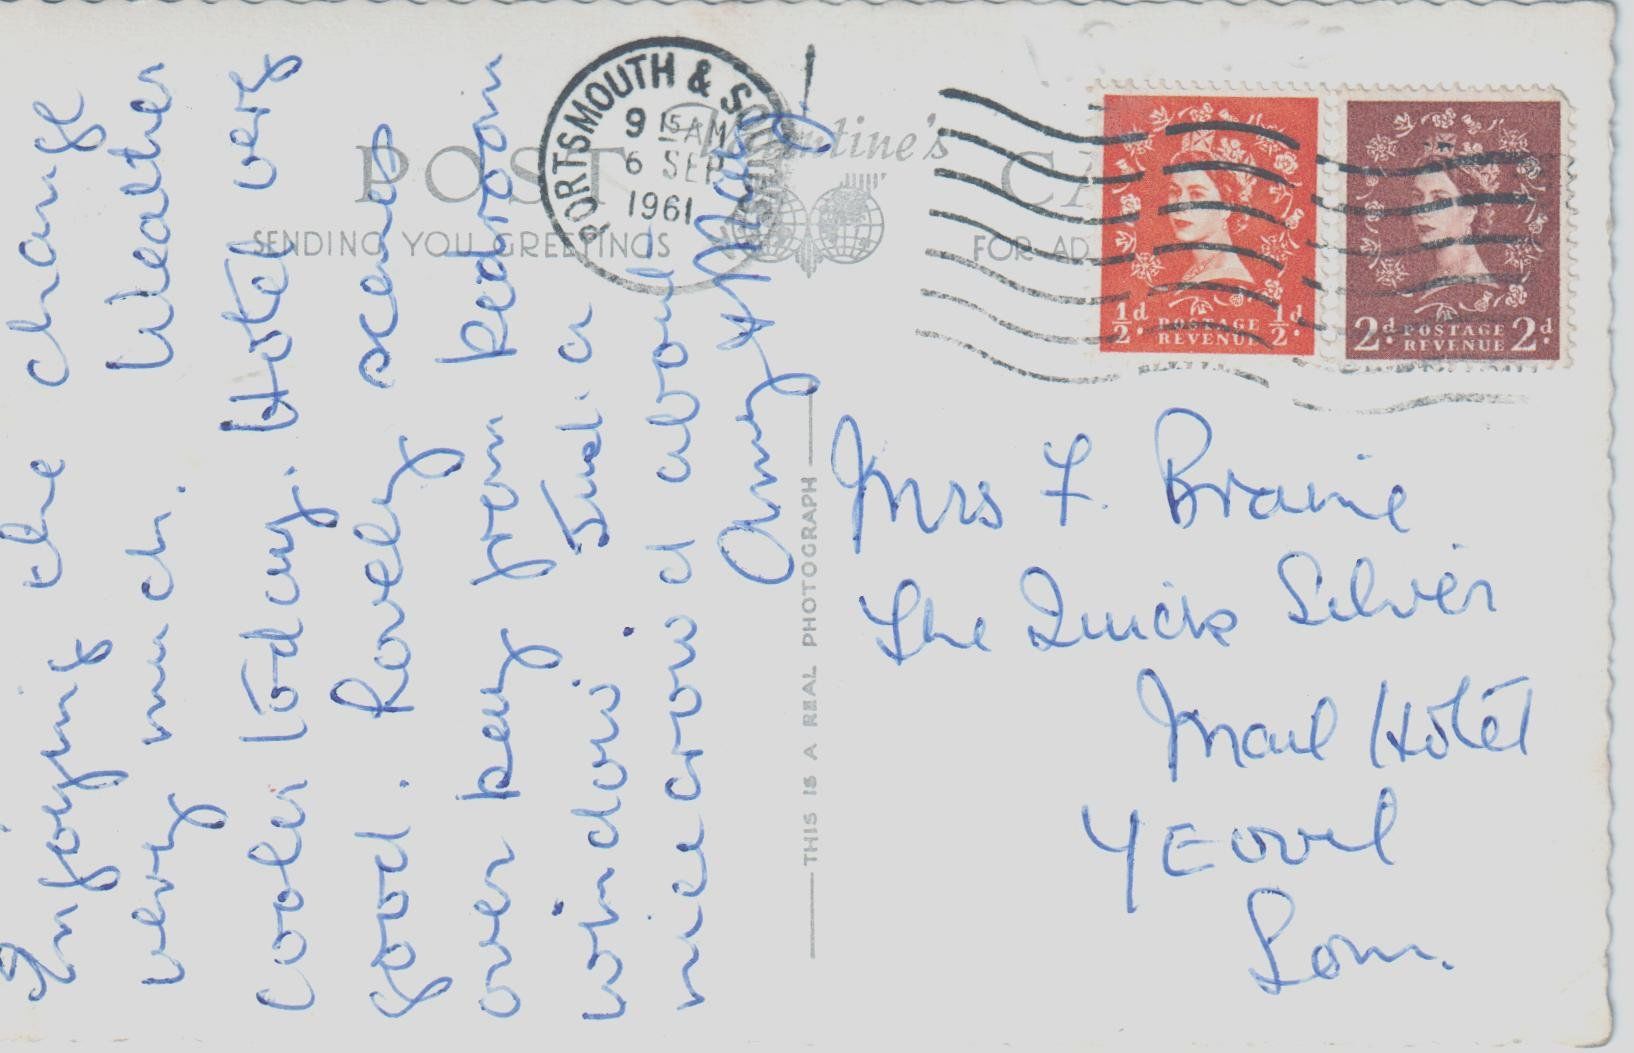 Enjoying the change
very much. Weather
cooler today. Hotel very
good. Lovely scenes
over bay from bedroom
window. Just a
nice crowd about
Amy & May
POST CA
Valentine's
SENDING YOU GREETINGS
FOR AD
PORTSMOUTH & SOUTHSEA
9 15 AM
6 SEP
1961
½d. POSTAGE REVENUE ½d.
2d. POSTAGE REVENUE 2d.
THIS IS A REAL PHOTOGRAPH
Mrs F. Braine
The Quick Silver
Mail Hotel
YEOVIL
Som.